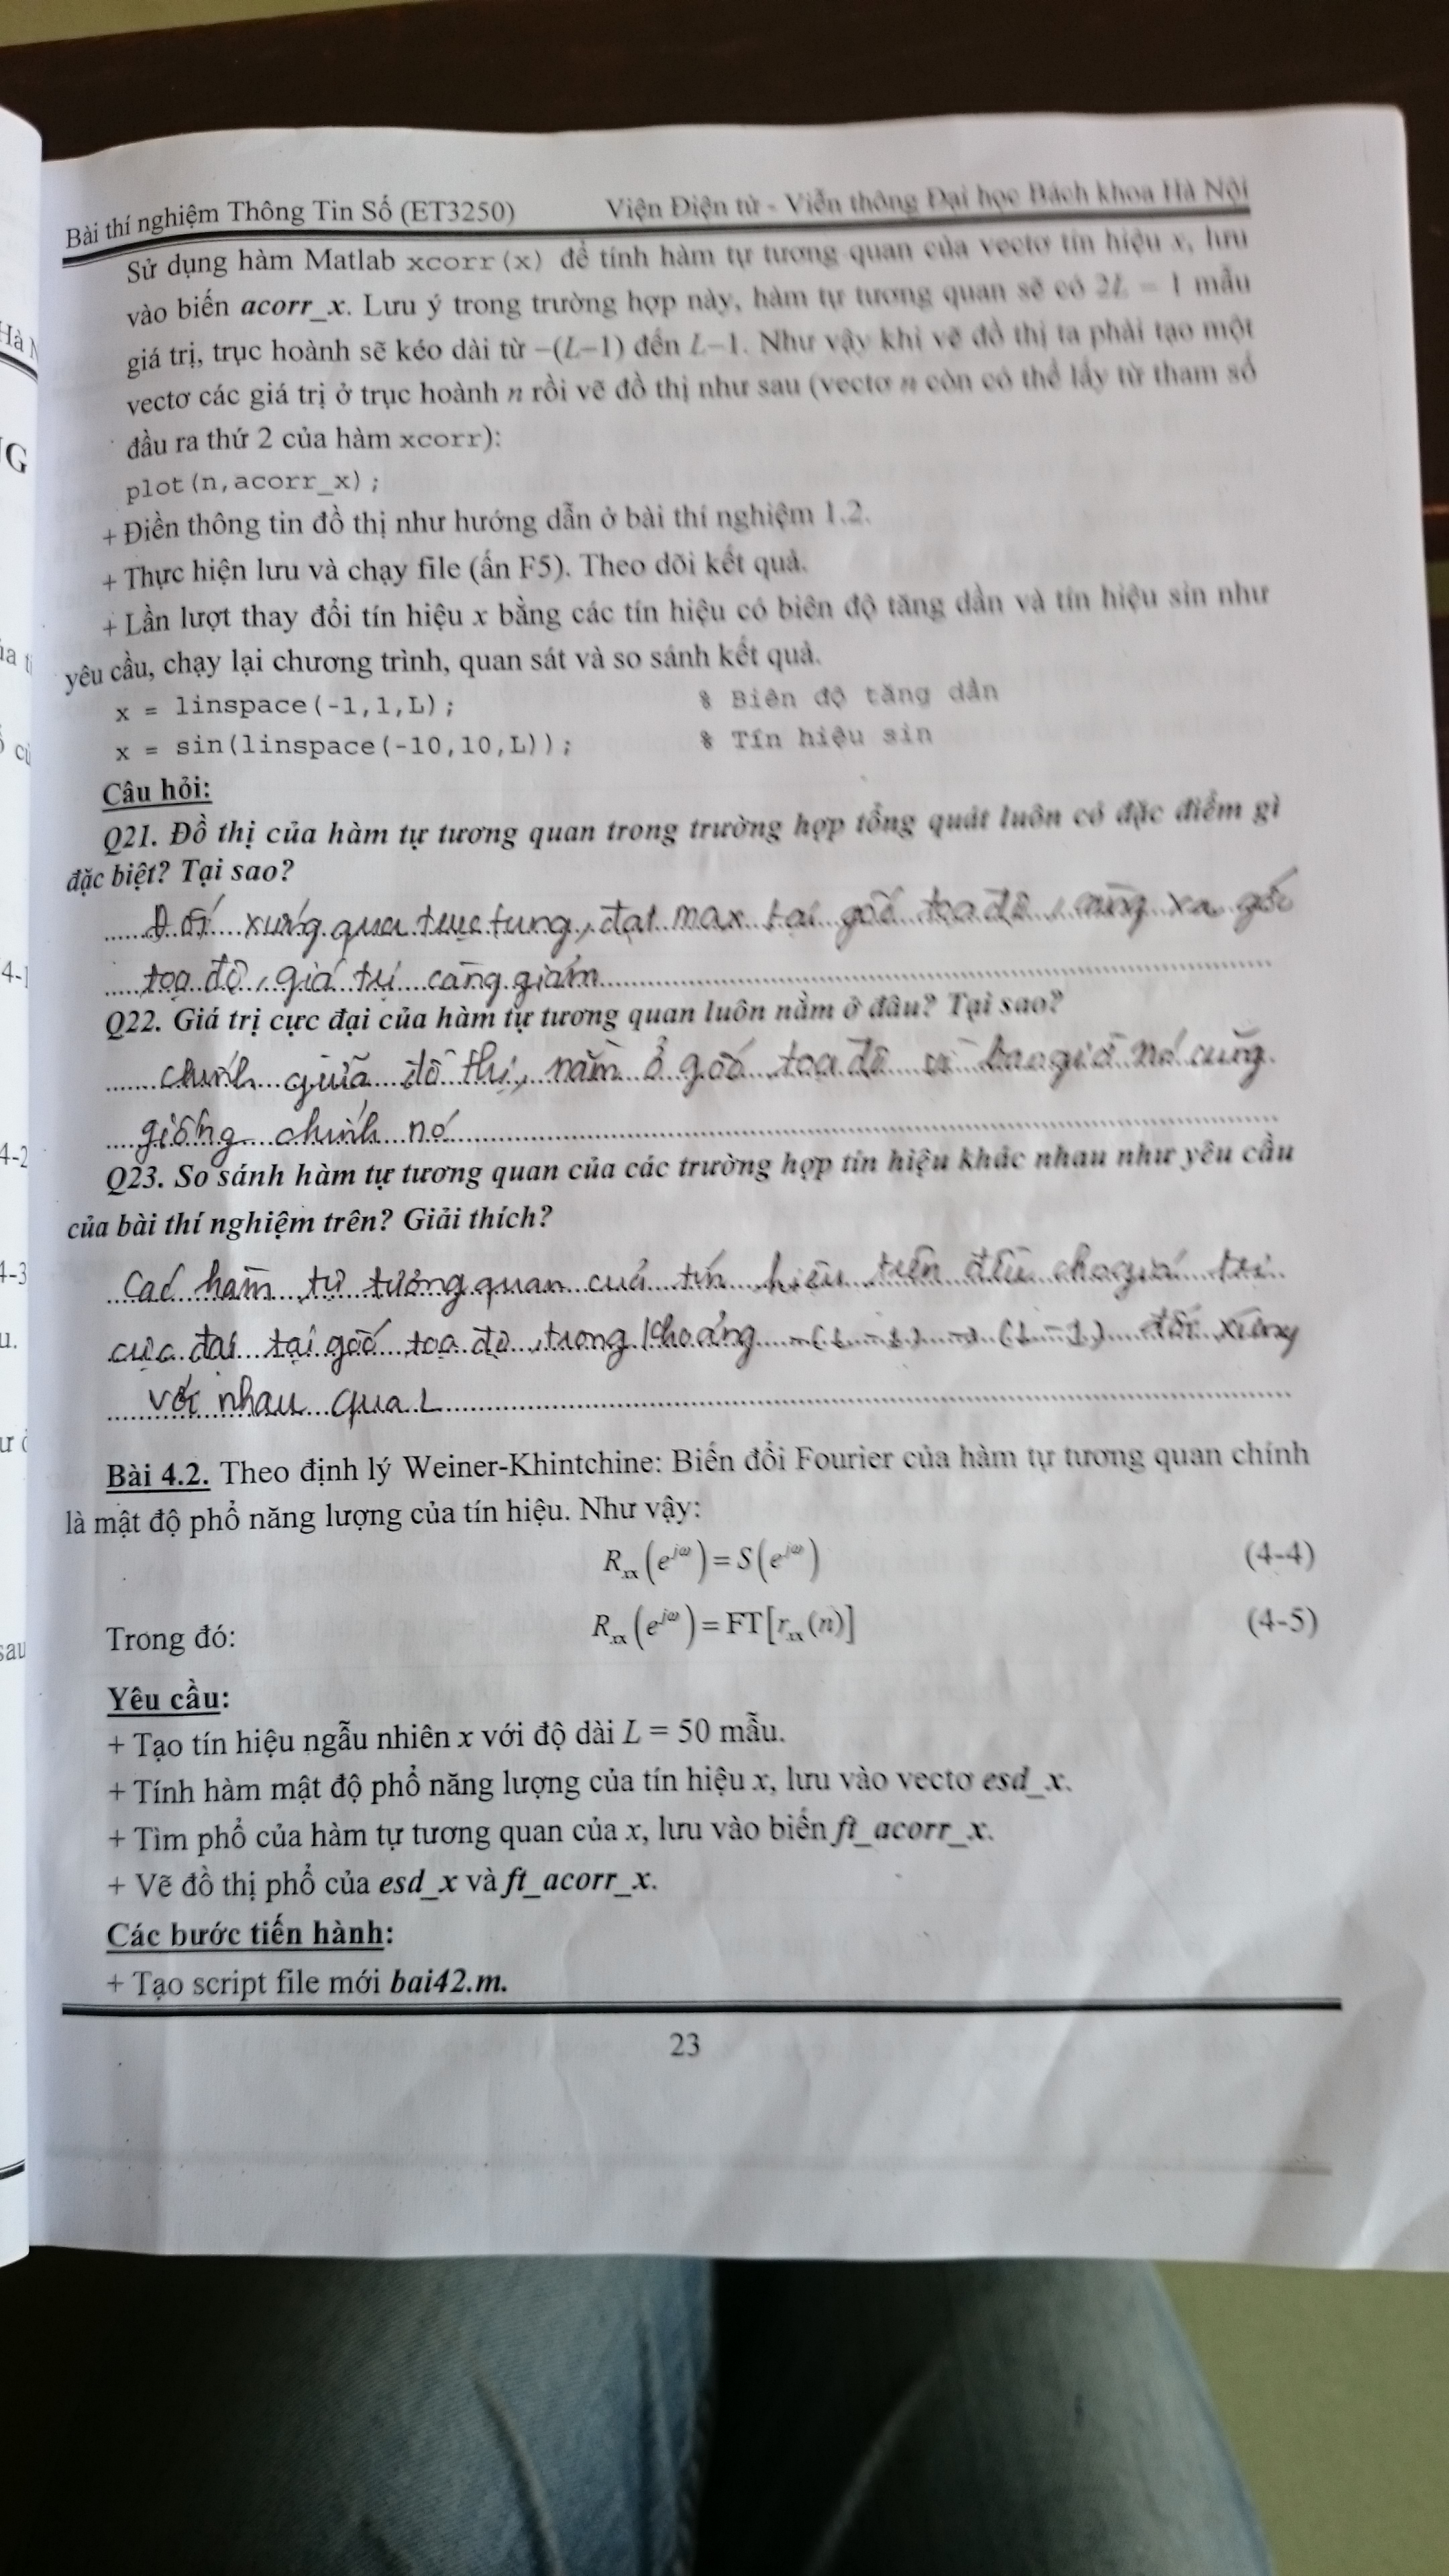 Bài thí nghiệm Thông Tin Số (ET3250) Viện Điện tử - Viễn thông Đại học Bách khoa Hà Nội
Sử dụng hàm Matlab xcorr(x) để tính hàm tự tương quan của vectơ tín hiệu x, lưu
vào biến acorr_x. Lưu ý trong trường hợp này, hàm tự tương quan sẽ có 2L – 1 mẫu
giá trị, trục hoành sẽ kéo dài từ –(L–1) đến L–1. Như vậy khi vẽ đồ thị ta phải tạo một
vectơ các giá trị ở trục hoành n rồi vẽ đồ thị như sau (vectơ n còn có thể lấy từ tham số
đầu ra thứ 2 của hàm xcorr):
plot(n,acorr_x);
+ Điền thông tin đồ thị như hướng dẫn ở bài thí nghiệm 1.2.
+ Thực hiện lưu và chạy file (ấn F5). Theo dõi kết quả.
+ Lần lượt thay đổi tín hiệu x bằng các tín hiệu có biên độ tăng dần và tín hiệu sin như
yêu cầu, chạy lại chương trình, quan sát và so sánh kết quả.
x = linspace(-1,1,L); % Biên độ tăng dần
x = sin(linspace(-10,10,L)); % Tín hiệu sin
Câu hỏi:
Q21. Đồ thị của hàm tự tương quan trong trường hợp tổng quát luôn có đặc điểm gì
đặc biệt? Tại sao?
Đối xứng qua trục tung, đạt max tại gốc toạ độ, càng xa gốc
toạ độ, giá trị càng giảm
Q22. Giá trị cực đại của hàm tự tương quan luôn nằm ở đâu? Tại sao?
chính giữa đồ thị, nằm ở gốc toạ độ vì bao giờ nó cũng
giống chính nó
Q23. So sánh hàm tự tương quan của các trường hợp tín hiệu khác nhau như yêu cầu
của bài thí nghiệm trên? Giải thích?
Các hàm tự tương quan của tín hiệu trên đều cho giá trị
cực đại tại gốc toạ độ, trong khoảng -(L-1) → (L-1) đối xứng
với nhau qua L
Bài 4.2. Theo định lý Weiner-Khintchine: Biến đổi Fourier của hàm tự tương quan chính
là mật độ phổ năng lượng của tín hiệu. Như vậy:
R_xx(e^{jω}) = S(e^{jω}) (4-4)
Trong đó: R_xx(e^{jω}) = FT[r_xx(n)] (4-5)
Yêu cầu:
+ Tạo tín hiệu ngẫu nhiên x với độ dài L = 50 mẫu.
+ Tính hàm mật độ phổ năng lượng của tín hiệu x, lưu vào vectơ esd_x.
+ Tìm phổ của hàm tự tương quan của x, lưu vào biến ft_acorr_x.
+ Vẽ đồ thị phổ của esd_x và ft_acorr_x.
Các bước tiến hành:
+ Tạo script file mới bai42.m.
23